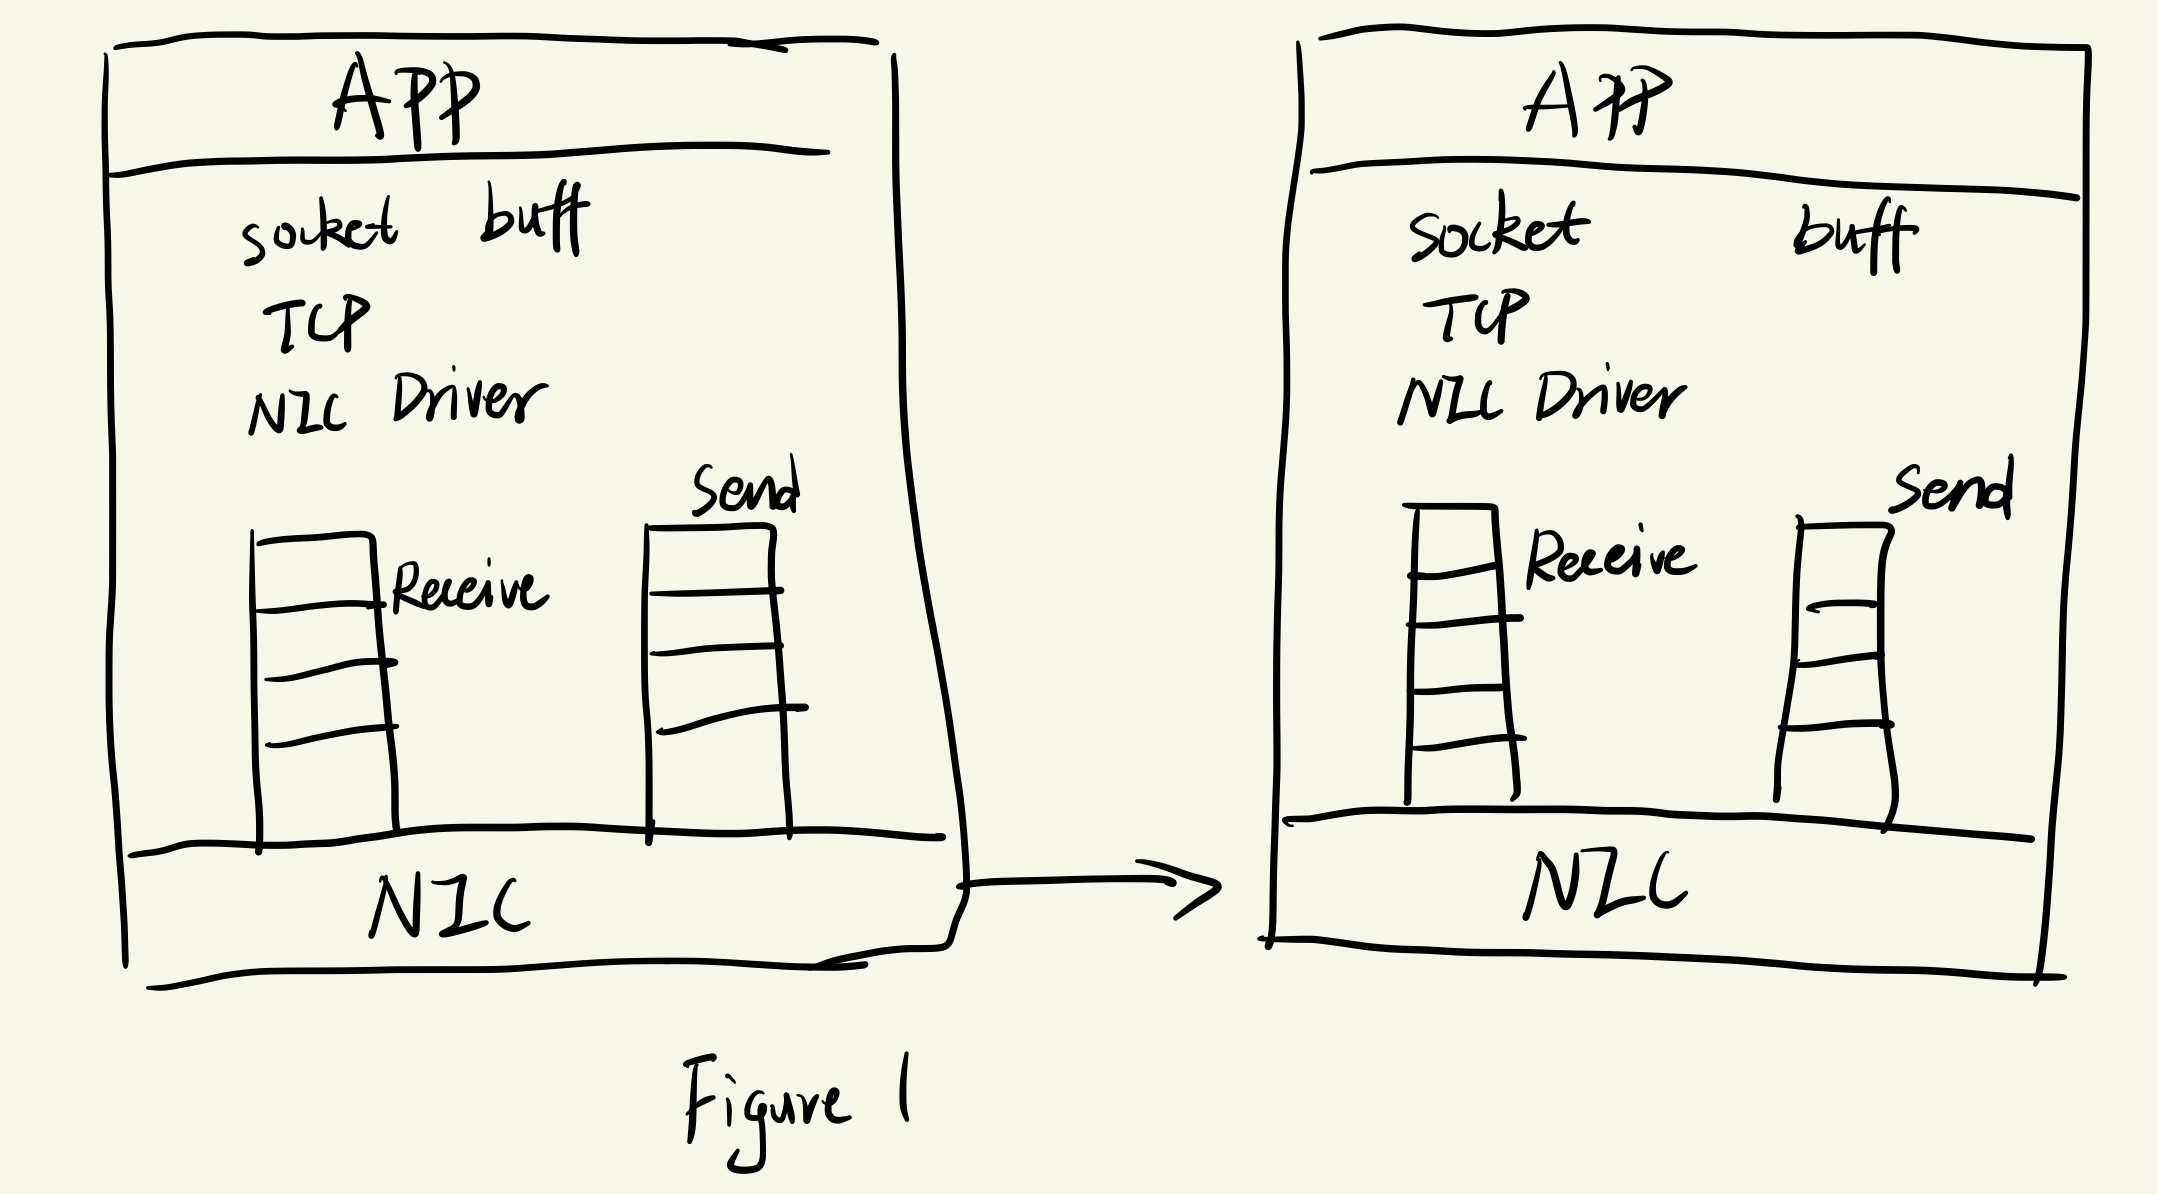 App
socket buff
TCP
NIC Driver
Send
Receive
NIC
App
Socket buff
TCP
NIC Driver
Send
Receive
NIC
Figure 1